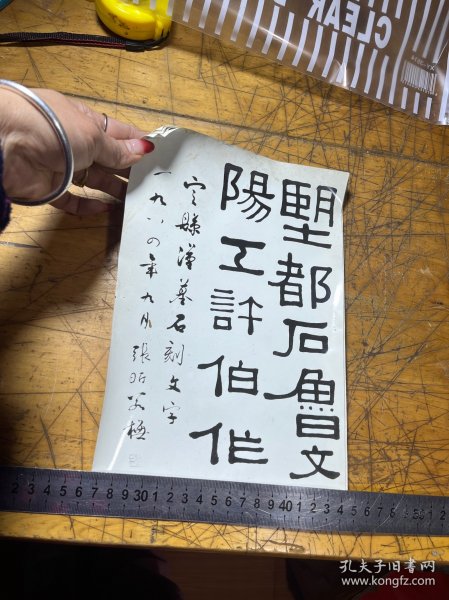 朢都石魯文
陽工許伯作
定縣漢墓石刻文字
一九八四年九月張
CLEAR
2 3 4 5 6 7 8 9 30 1 2 3 4 5 6 7 8 9 40 1 2 3 4 5 6 7 8 9
孔夫子旧书网
www.kongfz.com